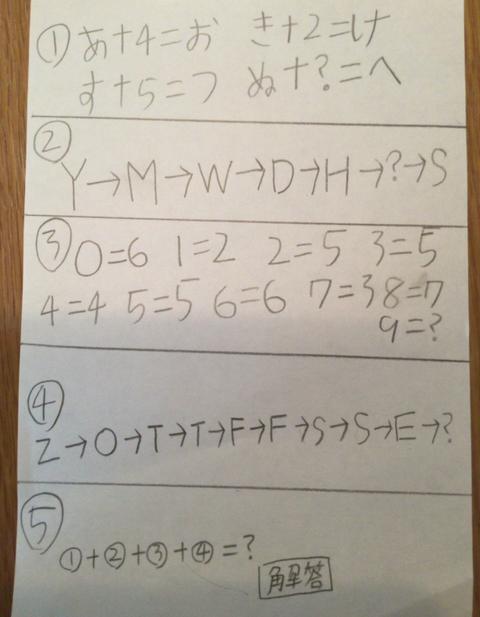 ① あ+4=お き+2=け
す+5=つ ぬ+?=へ
② Y→M→W→D→H→?→S
③ 0=6 1=2 2=5 3=5
4=4 5=5 6=6 7=3 8=7
9=?
④
Z→O→T→T→F→F→S→S→E→?
⑤
①+②+③+④=?
解答